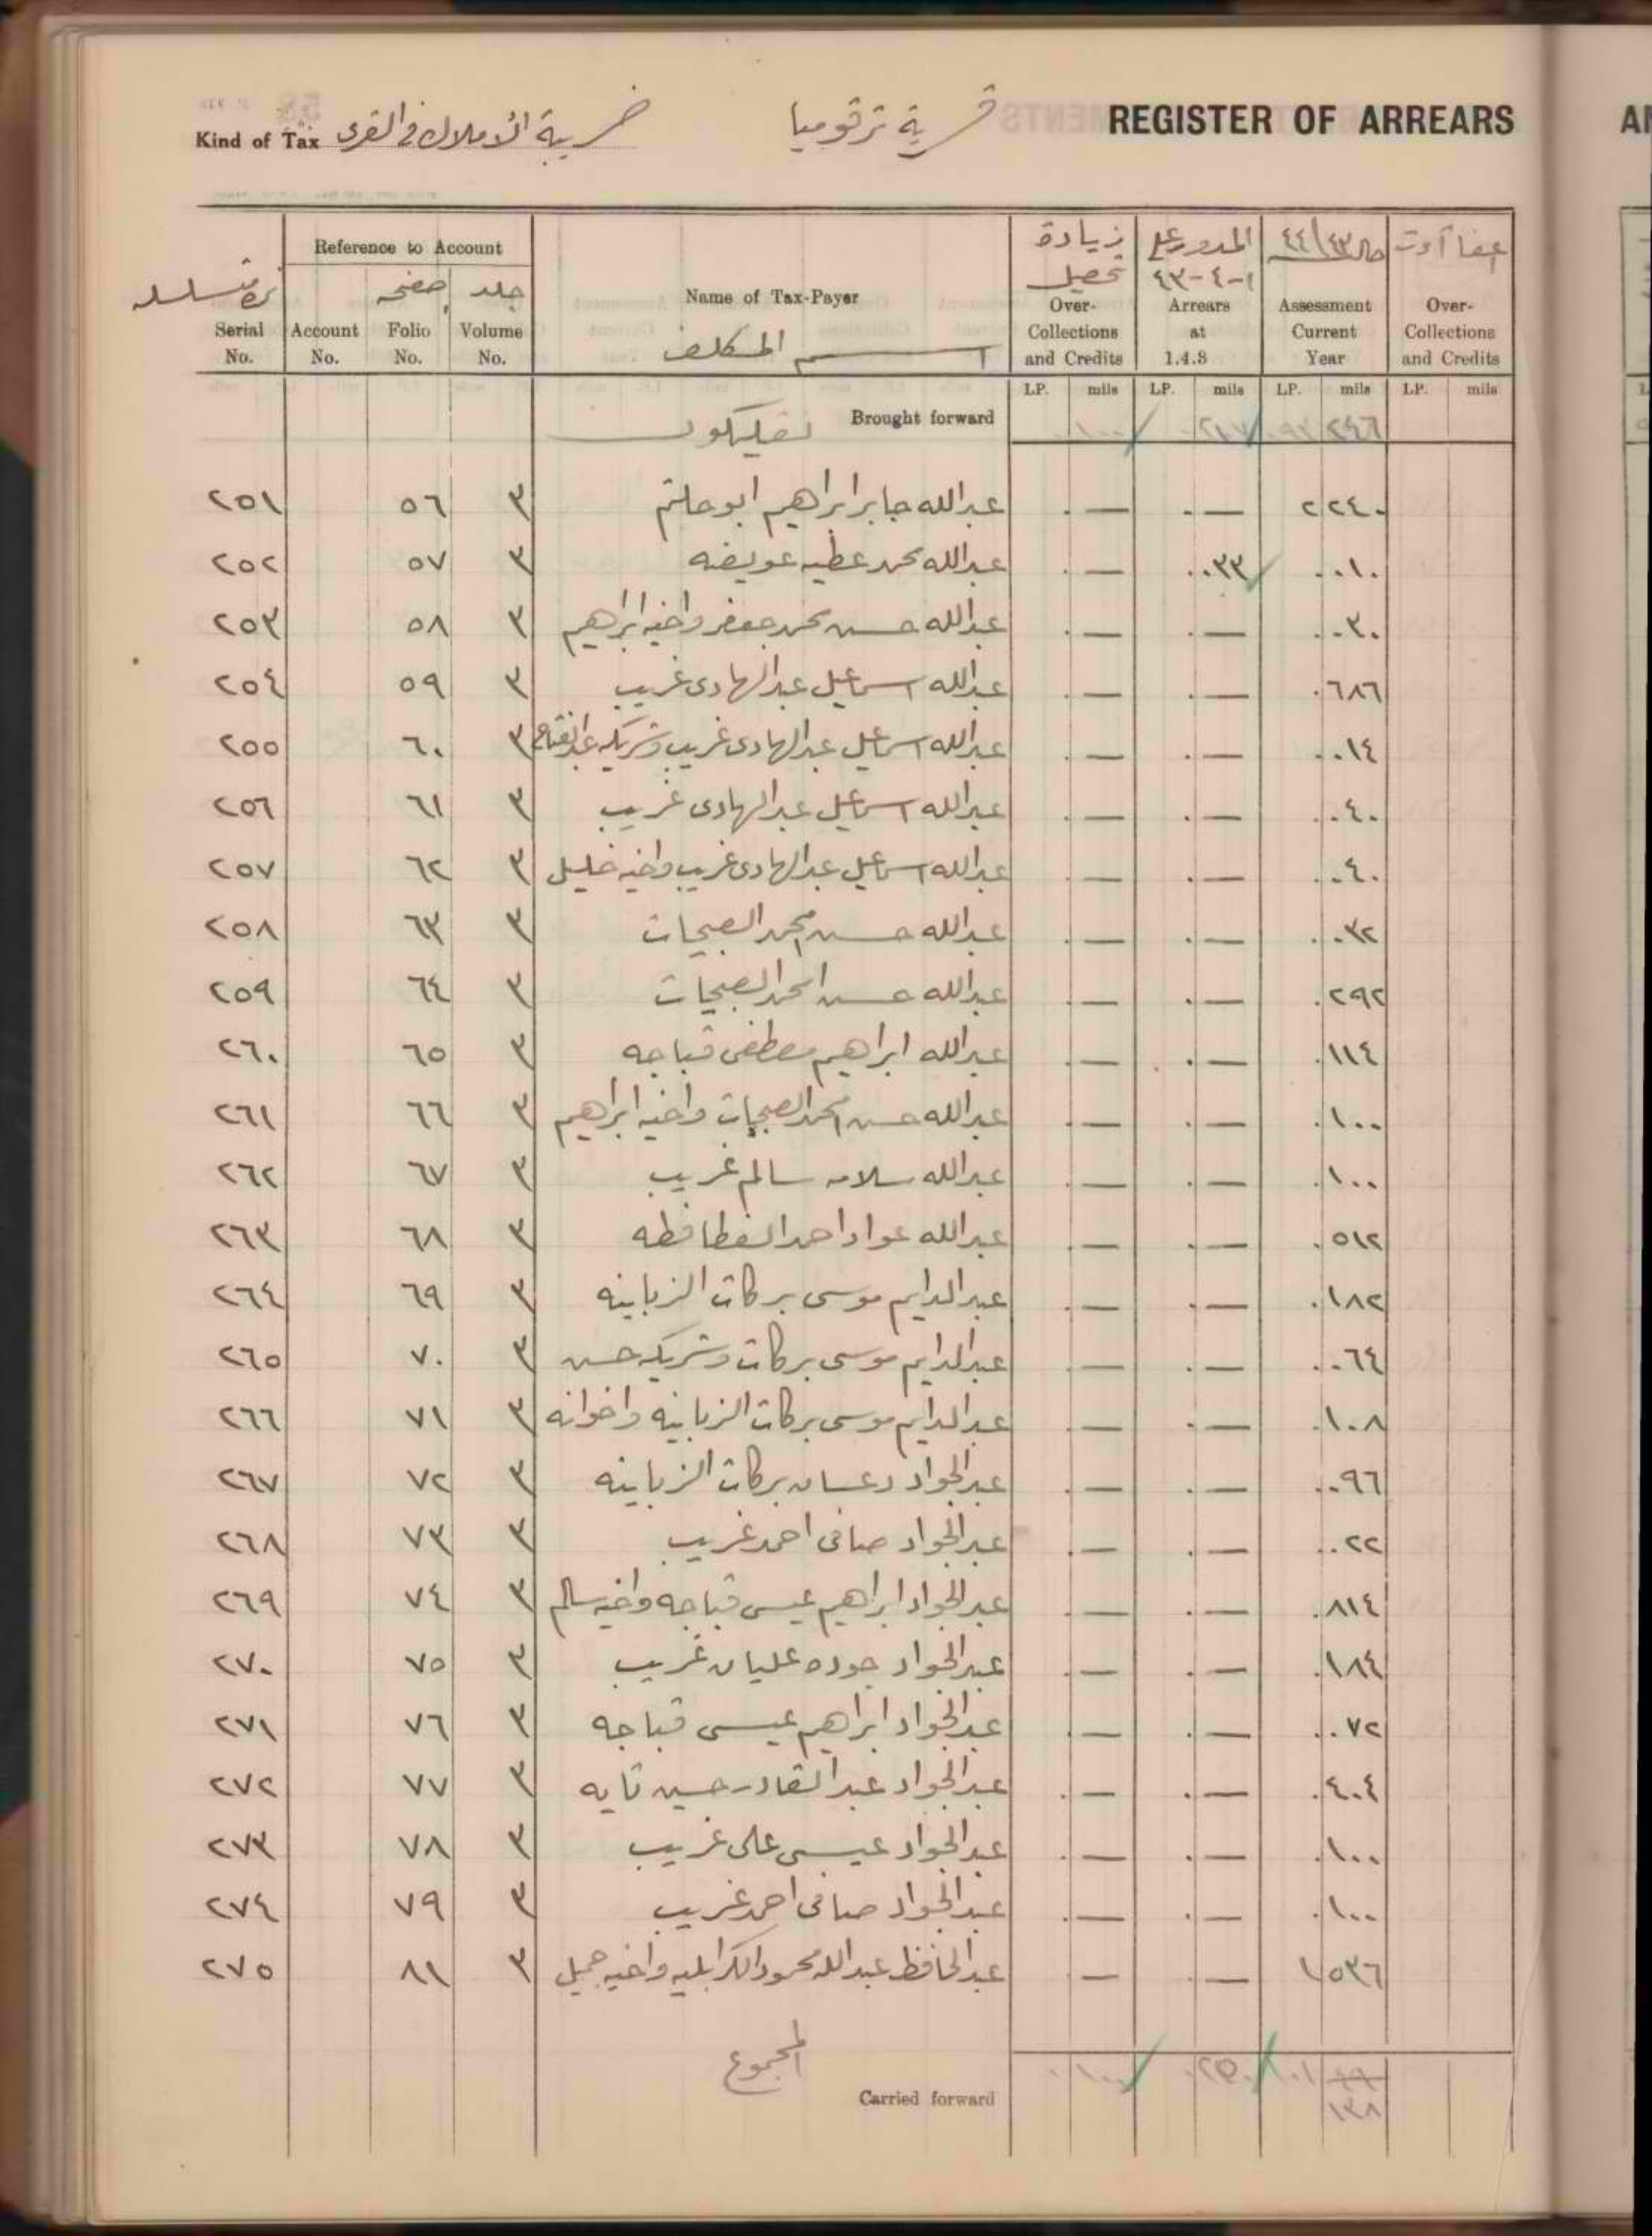 REGISTER OF ARREARS
قرية ترقوميا
Kind of Tax ضريبة الأملاك في القرى
Reference to Account
Serial No.
Account No.
صفحه Folio No.
جلد Volume No.
Name of Tax-Payer
اسم المكلف
زيادة تحصيل Over-Collections and Credits
المدور على ١-٤-٤٣ Arrears at 1.4.3
حال ٤٣/٤٤ Assessment Current Year
Over-Collections and Credits
LP. mils LP. mils LP. mils LP. mils
Brought forward .١٠٠ .٢١٧ ٩٣ ٢٤٦
٢٥١ ٥٦ ٣ عبدالله جابر ابراهيم ابو حلتم .— .— ٢ ٢٤٠
٢٥٢ ٥٧ ٣ عبدالله محمد عطيه عويضه .— .٠٣٣ .٠١٠
٢٥٣ ٥٨ ٣ عبدالله حسن محمد جعفر واخيه ابراهيم .— .— .٠٣٠
٢٥٤ ٥٩ ٣ عبدالله اسماعيل عبدالهادى غريب .— .— .٦٨٦
٢٥٥ ٦٠ ٣ عبدالله اسماعيل عبدالهادى غريب وشريكه عبدالفتاح .— .— .٠١٤
٢٥٦ ٦١ ٣ عبدالله اسماعيل عبدالهادى غريب .— .— .٠٤٠
٢٥٧ ٦٢ ٣ عبدالله اسماعيل عبدالهادى غريب واخيه خليل .— .— .٠٤٠
٢٥٨ ٦٣ ٣ عبدالله حسن محمد الصبحات .— .— .٠٣٢
٢٥٩ ٦٤ ٣ عبدالله حسن امحمد الصبحات .— .— .٢٩٢
٢٦٠ ٦٥ ٣ عبدالله ابراهيم مصطفى قباجه .— .— .١١٤
٢٦١ ٦٦ ٣ عبدالله حسن امحمد الصبحات واخيه ابراهيم .— .— .١٠٠
٢٦٢ ٦٧ ٣ عبدالله سلامه سالم غريب .— .— .١٠٠
٢٦٣ ٦٨ ٣ عبدالله عواد احمد الفطافطه .— .— .٥١٢
٢٦٤ ٦٩ ٣ عبدالدايم موسى بركات الزباينه .— .— .١٨٢
٢٦٥ ٧٠ ٣ عبدالدايم موسى بركات وشريكه حسن .— .— .٠٦٤
٢٦٦ ٧١ ٣ عبدالدايم موسى بركات الزباينه واخوانه .— .— .١٠٨
٢٦٧ ٧٢ ٣ عبدالجواد دعسان بركات الزباينه .— .— .٠٩٦
٢٦٨ ٧٣ ٣ عبدالجواد صافى احمد غريب .— .— .٠٢٢
٢٦٩ ٧٤ ٣ عبدالجواد ابراهيم عيسى قباجه واخيه سالم .— .— .٨١٤
٢٧٠ ٧٥ ٣ عبدالجواد جوده عليان غريب .— .— .١٨٤
٢٧١ ٧٦ ٣ عبدالجواد ابراهيم عيسى قباجه .— .— .٠٧٢
٢٧٢ ٧٧ ٣ عبدالجواد عبدالقادر حسين تايه .— .— .٤٠٤
٢٧٣ ٧٨ ٣ عبدالجواد عيسى على غريب .— .— .١٠٠
٢٧٤ ٧٩ ٣ عبدالجواد صافى احمد غريب .— .— .١٠٠
٢٧٥ ٨١ ٣ عبدالحافظ عبدالله محمود الكرابليه واخيه جميل — .— ١ ٥٣٦
المجموع
Carried forward .١٠٠ .٢٥٠ ١٠١
١٣٨